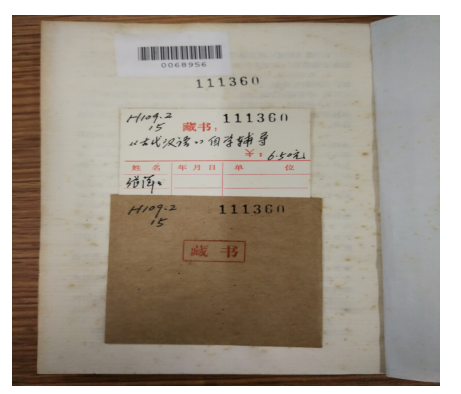 0068956
111360
H109.2 111360
15 藏书:
《古代汉语》自学辅导
¥: 6.50元
姓 名 年 月 日 单 位
H109.2 111360
15
藏 书